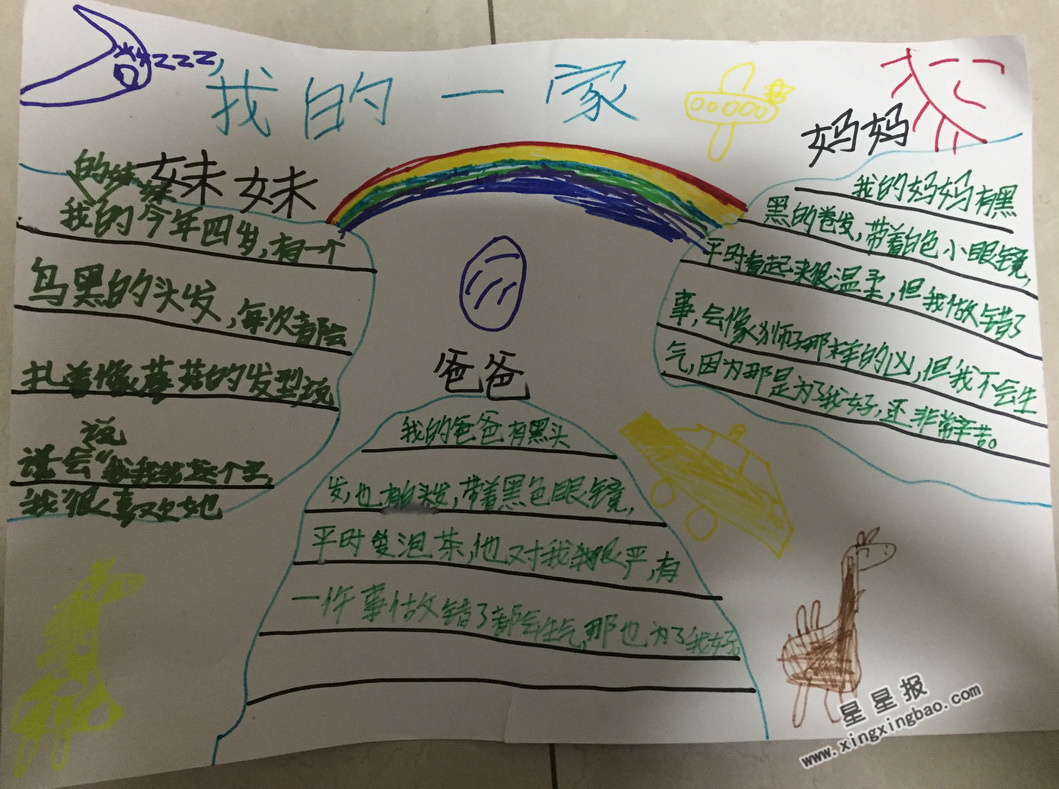 zzz
我的一家
妹妹
的妹妹
我的今年四岁，有一个
乌黑的头发，每次都会
扎着像蘑菇的发型
说
我很喜欢她
爸爸
我的爸爸有黑头
发，也有白头发，带着黑色眼镜，
平时爱泡茶，他对我很严，有
一件事做错了都会生气，那也为了我好。
妈妈
我的妈妈有黑
黑的卷发，带着白色小眼镜，
平时看起来很温柔，但我做错了
事，会像狮子那样的凶，但我不会生
气，因为那是为了我好，还非常辛苦。
星星报
www.xingxingbao.com